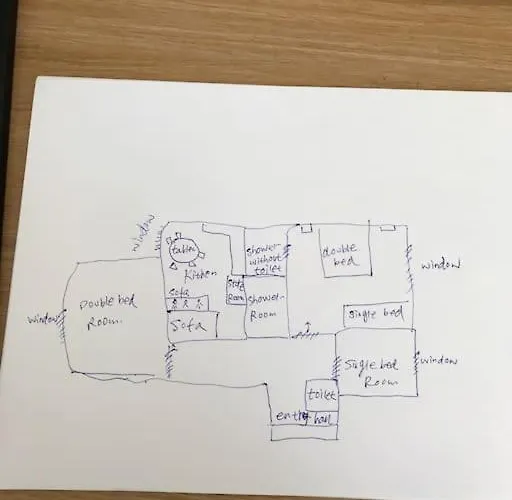 window
table
Kitchen
shower
without
toilet
double
bed
window
Double bed
Room
window
sofa
Room
shower
Room
Sofa
single bed
Single bed
Room
window
toilet
hall